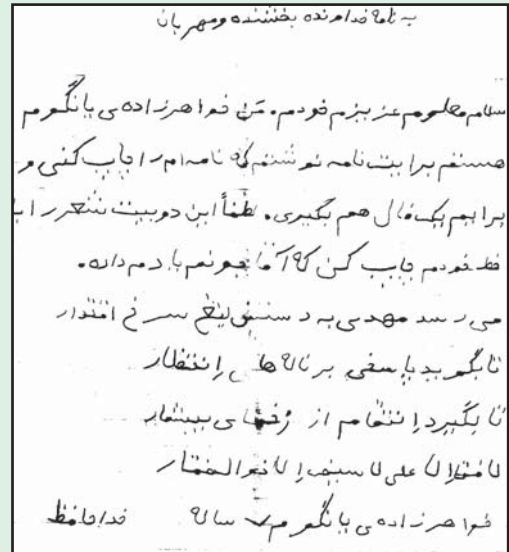 به نامه خداونده بخشنده و مهربان
سلام معلومم عزیزم خودم. من خواهرزاده ی یانگوم
هستم برایت نامه نوشتم که نامه ام را چاپ کنی و
برایم یک فال هم بگیری. لطفاً این دو بیت شعر را با
خط خودم چاپ کن که آقا جونم یادم داده.
می رسد مهدی به دستش تیغ سرخ اقتدار
تا بگوید پاسخی بر ناله های اِنتظار
تا بگیرد اِنتقام از زخمهای بیشمار
لافتا اِلا علی لا سیف اِلا ذوالفقار
خواهرزاده ی یانگوم ۷ ساله خداحافظ